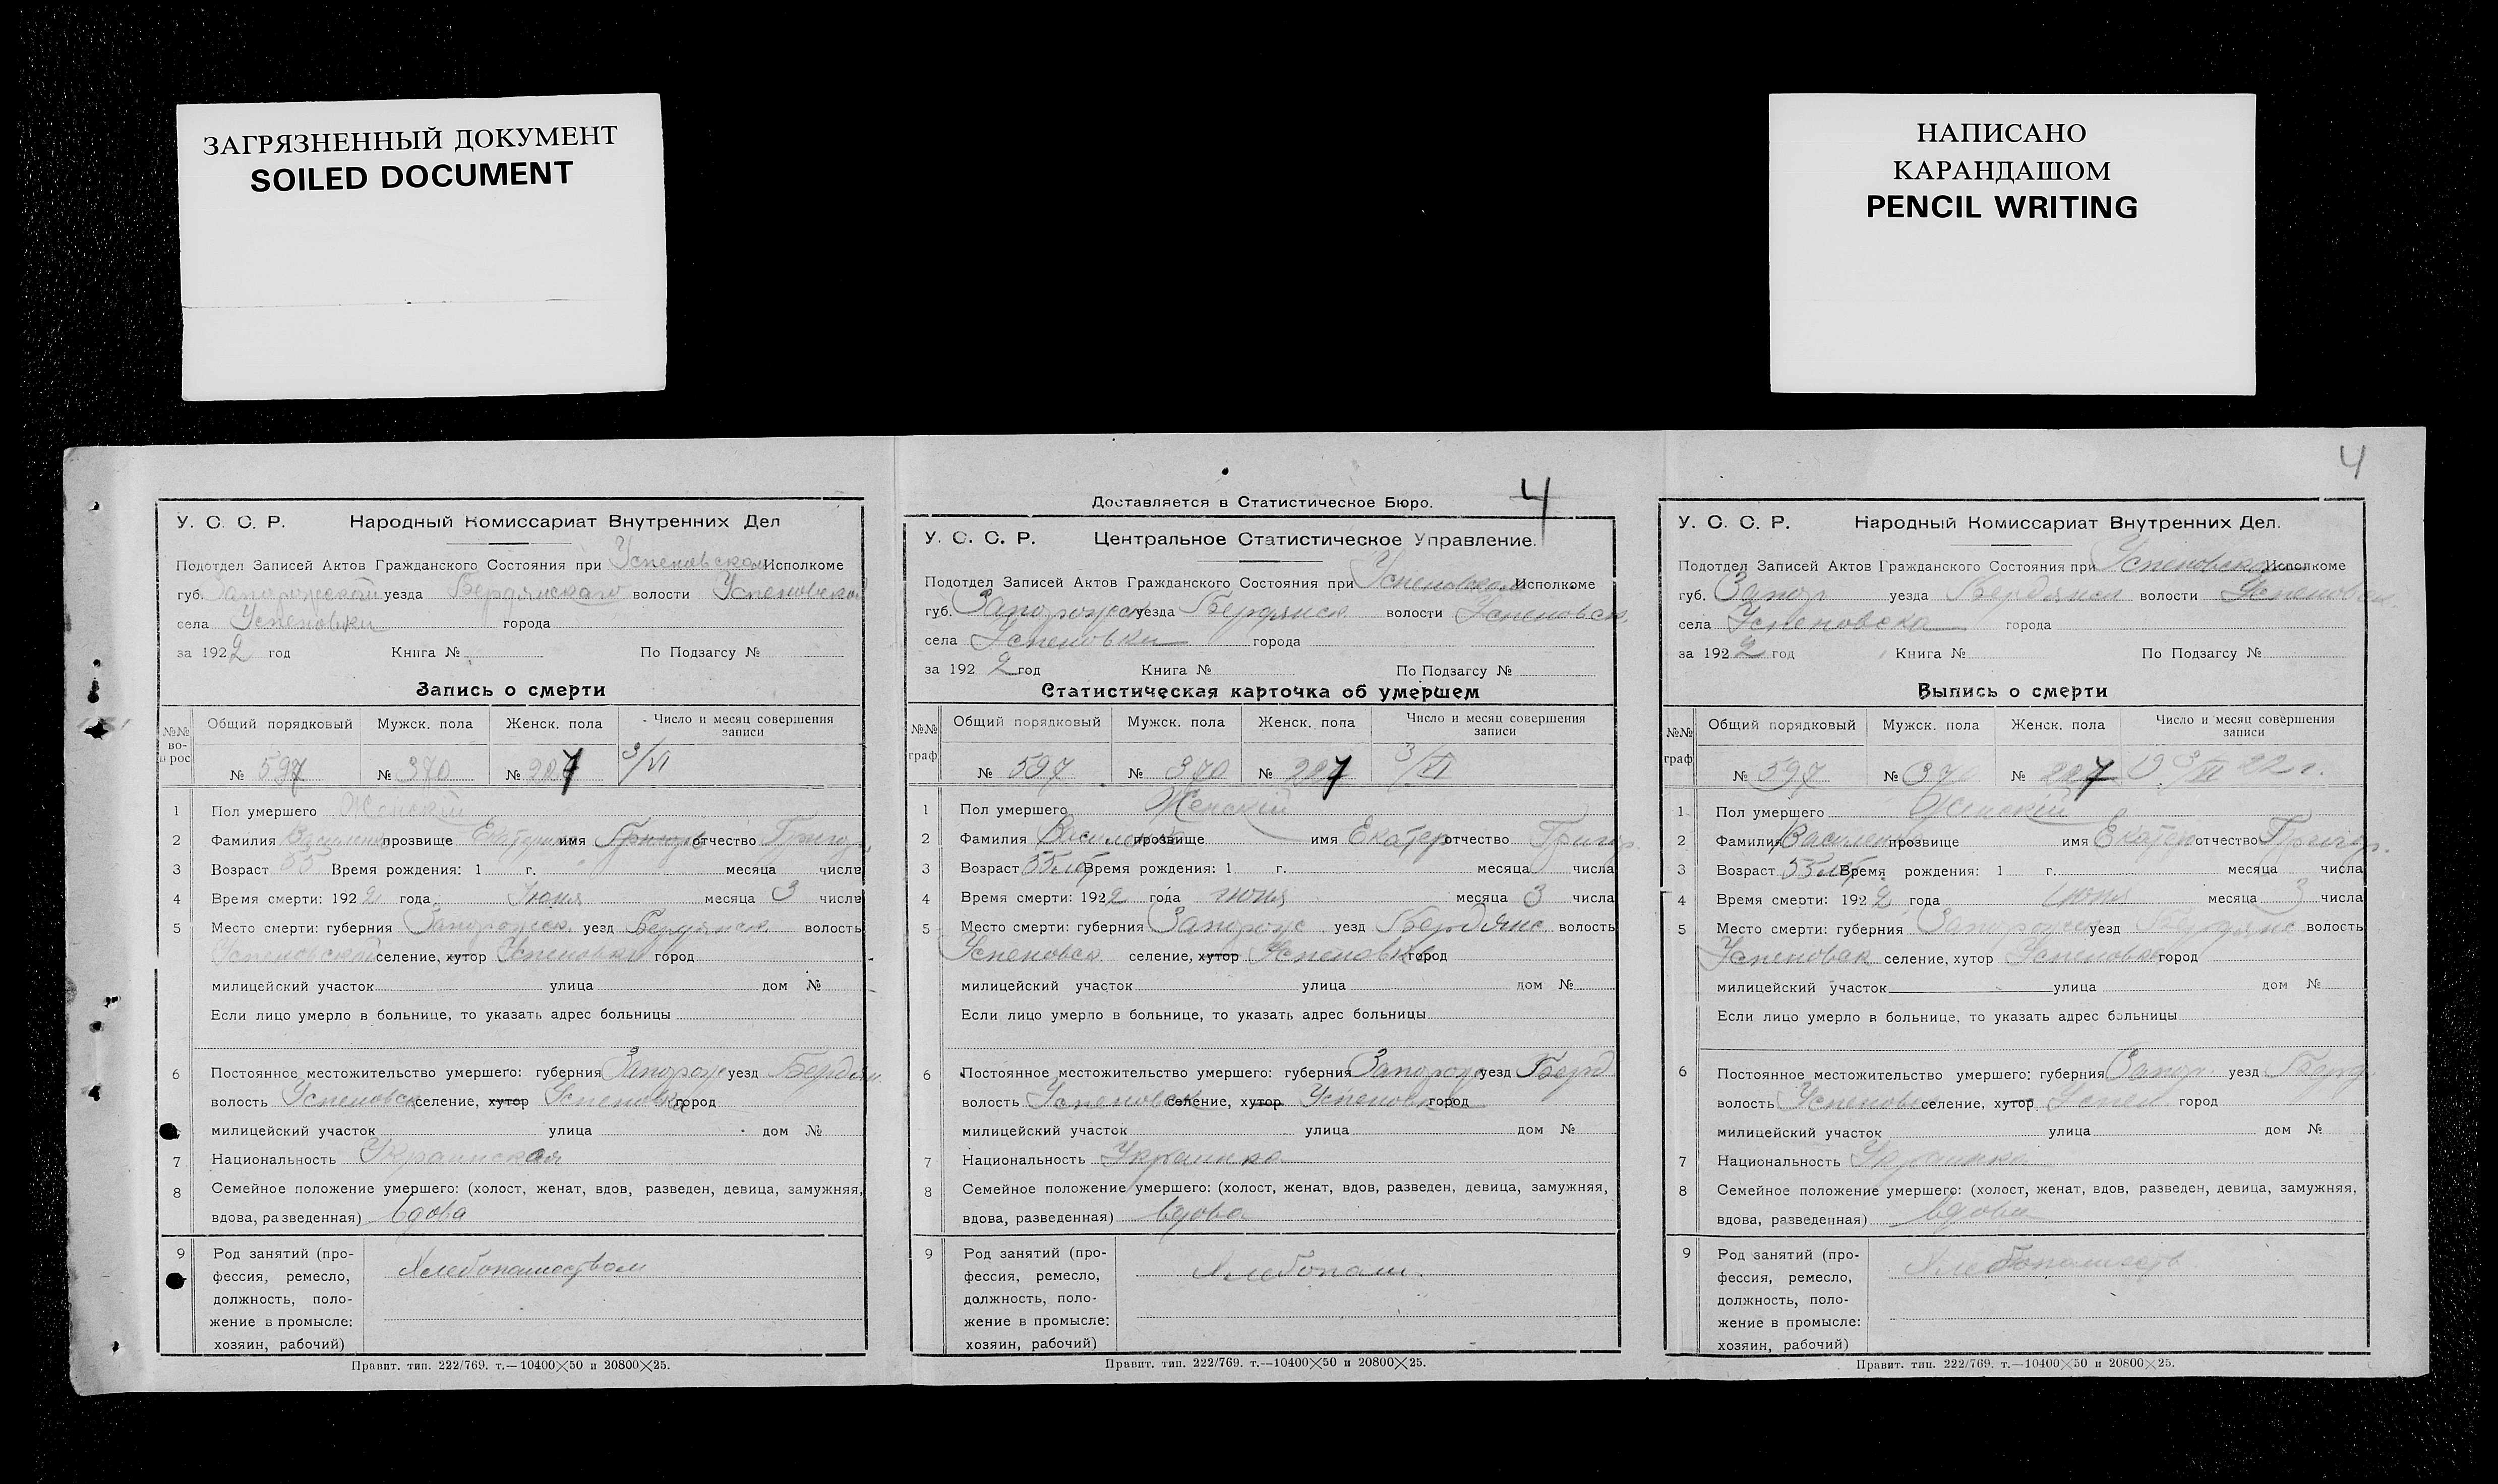 ЗАГРЯЗНЕННЫЙ ДОКУМЕНТ
SOILED DOCUMENT
НАПИСАНО
КАРАНДАШОМ
PENCIL WRITING
4
У. С. С. Р. Народный Комиссариат Внутренних Дел
Подотдел Записей Актов Гражданского Состояния при Успеновском Исполкоме
губ. Запорожской уезда Бердянского волости Успеновской
села Успеновки города
за 1922 год Книга № По Подзагсу №
Запись о смерти
№№ во- рос Общий порядковый Мужск. пола Женск. пола Число и месяц совершения записи
№ 597 № 370 № 227 3/VI
1 Пол умершего Женский
2 Фамилия Василенко прозвище Екатерина имя Григорь отчество Григор
3 Возраст 55 Время рождения: 1 г. месяца числа
4 Время смерти: 1922 года Июня месяца 3 числа
5 Место смерти: губерния Запорожск. уезд Бердянск волость
Успеновской селение, хутор Успеновки город
милицейский участок улица дом №
Если лицо умерло в больнице, то указать адрес больницы
6 Постоянное местожительство умершего: губерния Запорож уезд Бердян
волость Успеновск селение, хутор Успеновка город
милицейский участок улица дом №
7 Национальность Украинская
8 Семейное положение умершего: (холост, женат, вдов, разведен, девица, замужняя,
вдова, разведенная) вдова
9 Род занятий (про-
фессия, ремесло, Хлебопашеством
должность, поло-
жение в промысле:
хозяин, рабочий)
Правит. тип. 222/769. т.—10400×50 и 20800×25.
Доставляется в Статистическое Бюро. 4
У. С. С. Р. Центральное Статистическое Управление.
Подотдел Записей Актов Гражданского Состояния при Успеновском Исполкоме
губ. Запорожск уезда Бердянск волости Успеновск
села Успеновки города
за 1922 год Книга № По Подзагсу №
Статистическая карточка об умершем
№№ граф Общий порядковый Мужск. пола Женск. пола Число и месяц совершения записи
№ 597 № 370 № 227 3/VI
1 Пол умершего Женский
2 Фамилия Василенко прозвище имя Екатер отчество Григор
3 Возраст 55 лет Время рождения: 1 г. месяца числа
4 Время смерти: 1922 года июня месяца 3 числа
5 Место смерти: губерния Запорож уезд Бердянс волость
Успеновск селение, хутор Успеновке город
милицейский участок улица дом №
Если лицо умерло в больнице, то указать адрес больницы
6 Постоянное местожительство умершего: губерния Запорож уезд Берд
волость Успеновск селение, хутор Успеновка город
милицейский участок улица дом №
7 Национальность Украинка
8 Семейное положение умершего: (холост, женат, вдов, разведен, девица, замужняя,
вдова, разведенная) вдова
9 Род занятий (про-
фессия, ремесло, Хлебопаш.
должность, поло-
жение в промысле:
хозяин, рабочий)
Правит. тип. 222/769. т.—10400×50 и 20800×25.
У. С. С. Р. Народный Комиссариат Внутренних Дел.
Подотдел Записей Актов Гражданского Состояния при Успеновском Исполкоме
губ. Запор уезда Бердянск волости Успеновск
села Успеновка города
за 1922 год Книга № По Подзагсу №
Выпись о смерти
№№ граф Общий порядковый Мужск. пола Женск. пола Число и месяц совершения записи
№ 597 № 370 № 227 19 3/VI 22 г.
1 Пол умершего Женский
2 Фамилия Василенко прозвище имя Екатер отчество Григор.
3 Возраст 55 лет Время рождения: 1 г. месяца числа
4 Время смерти: 1922 года июня месяца 3 числа
5 Место смерти: губерния Запорожск уезд Бердянс волость
Успеновск селение, хутор Успеновке город
милицейский участок улица дом №
Если лицо умерло в больнице, то указать адрес больницы
6 Постоянное местожительство умершего: губерния Запор. уезд Берд
волость Успеновск селение, хутор Успен город
милицейский участок улица дом №
7 Национальность Украинка
8 Семейное положение умершего: (холост, женат, вдов, разведен, девица, замужняя,
вдова, разведенная) вдова
9 Род занятий (про-
фессия, ремесло, Хлебопашеств
должность, поло-
жение в промысле:
хозяин, рабочий)
Правит. тип. 222/769. т.—10400×50 и 20800×25.